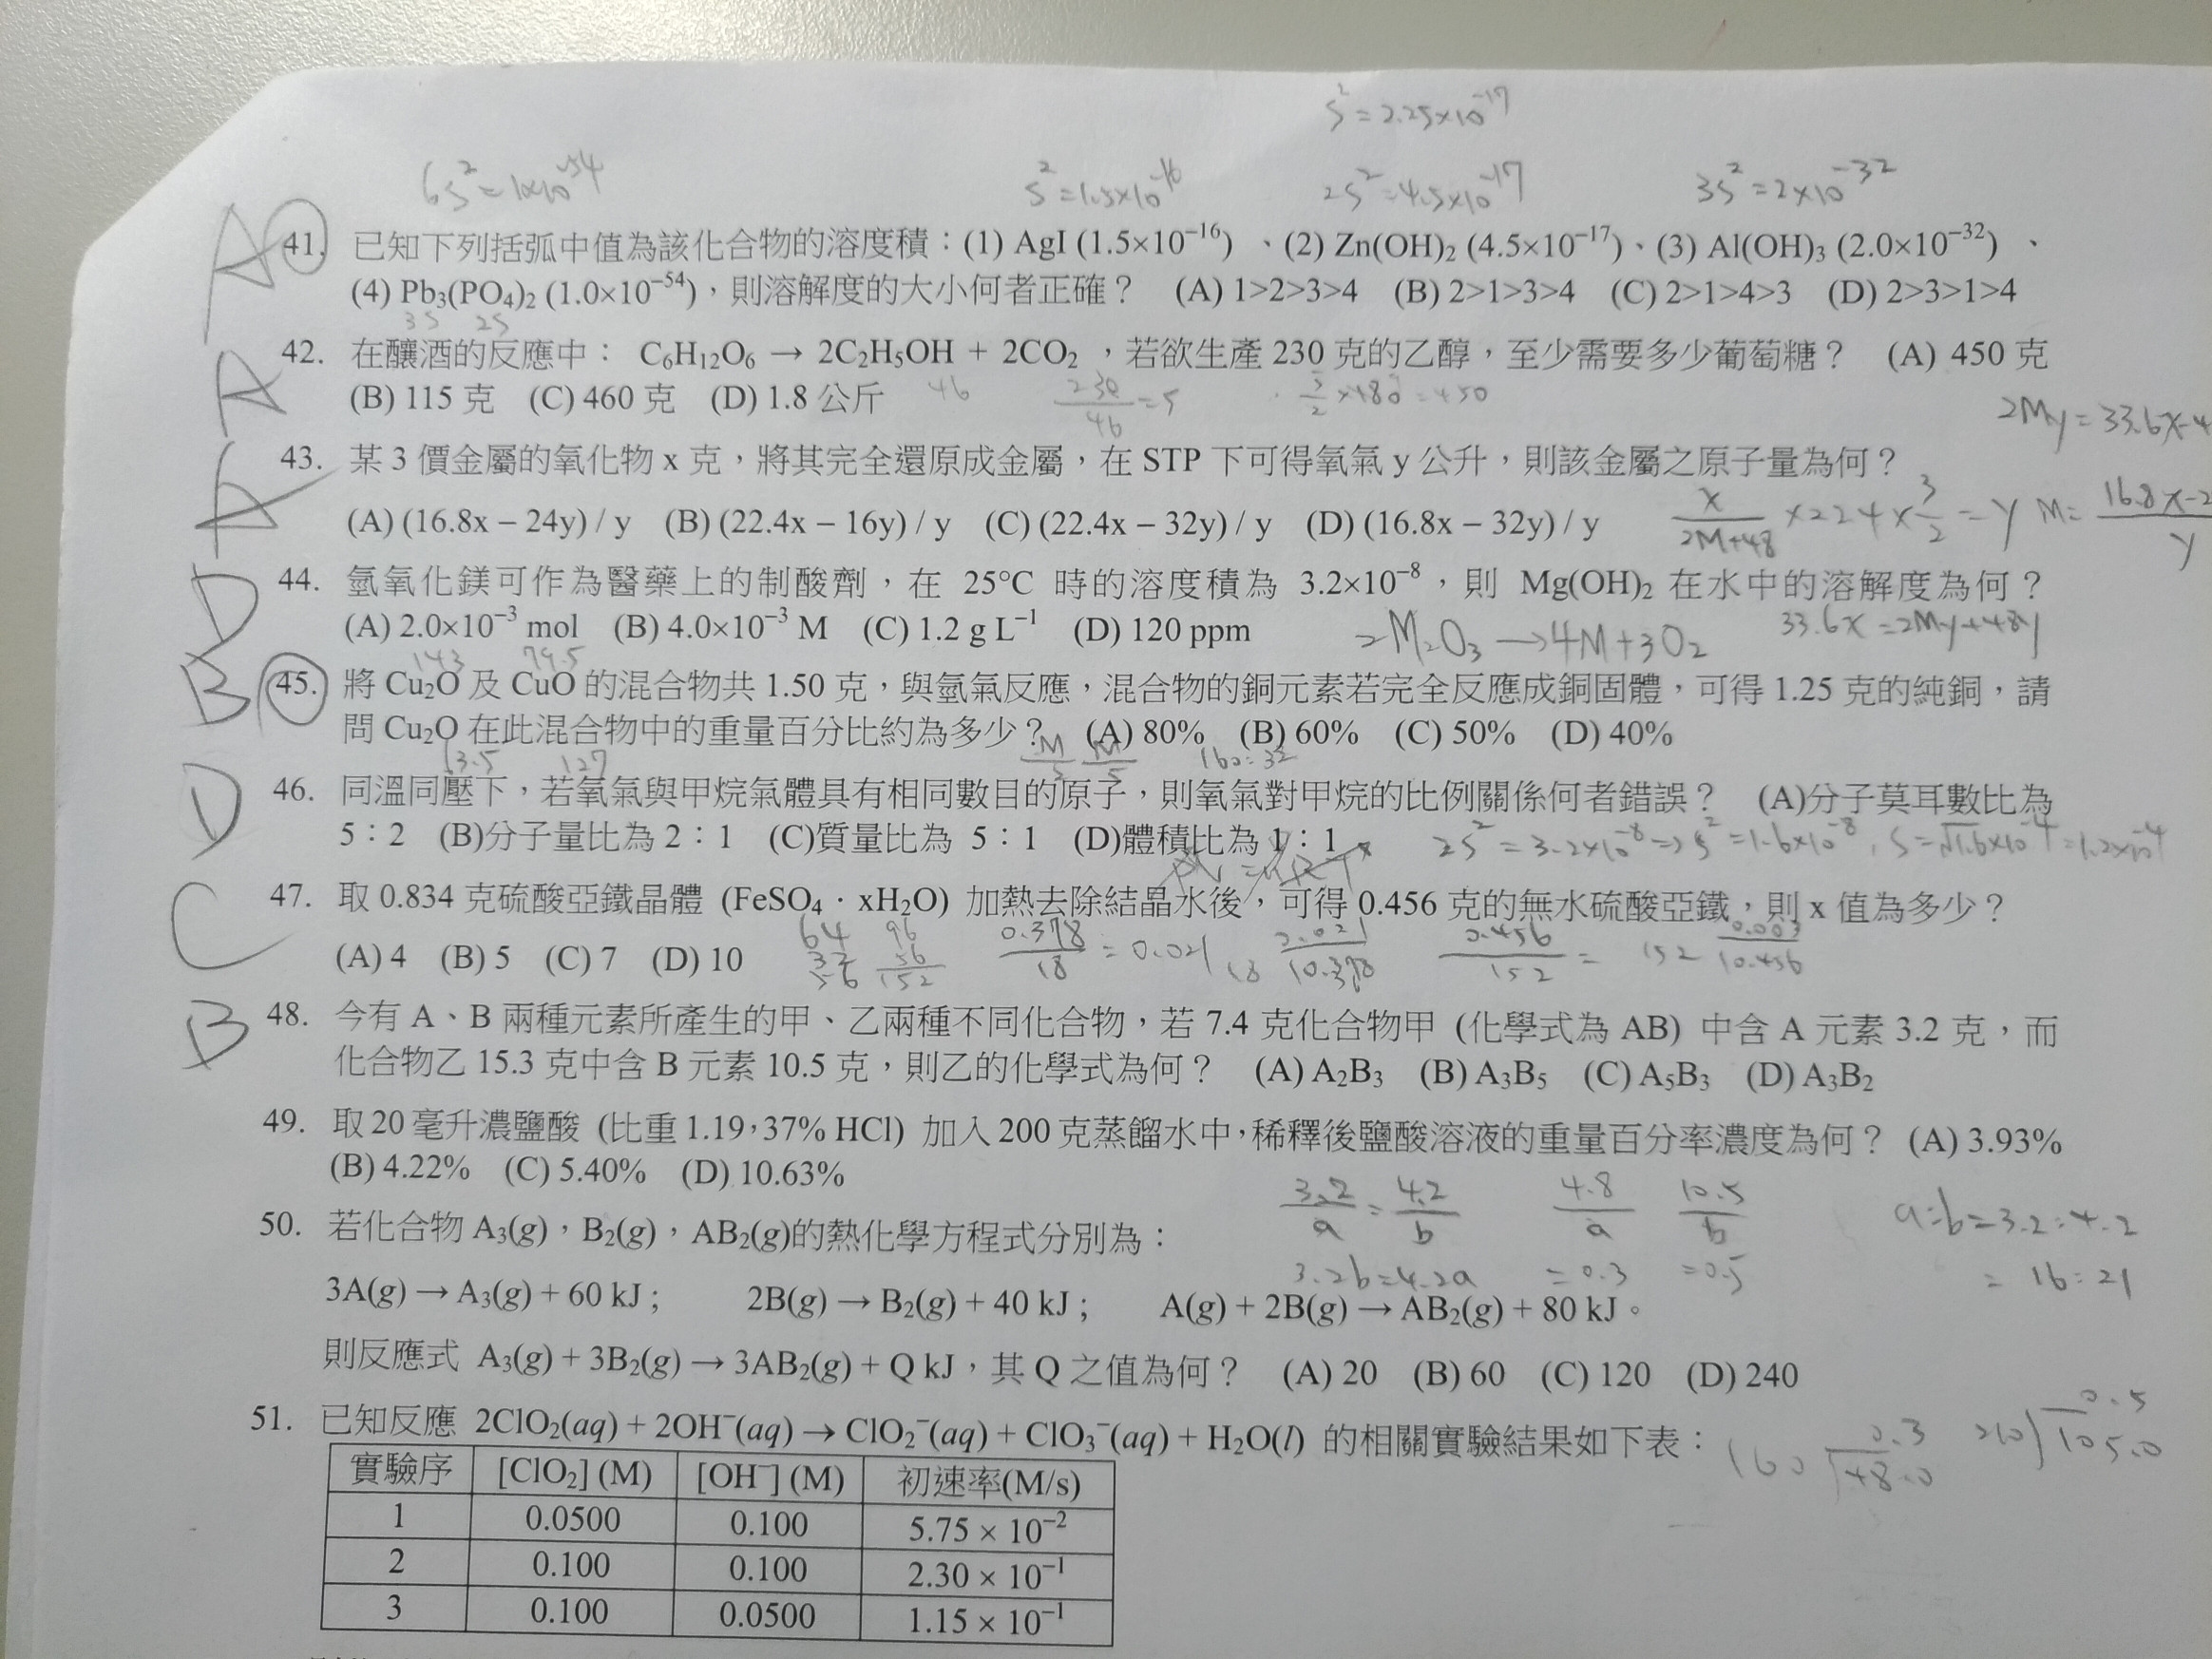 S²=2.25×10⁻¹⁷
6S²=1×10⁻⁵⁴ S²=1.5×10⁻¹⁶ 2S²=4.5×10⁻¹⁷ 3S²=2×10⁻³²
A 41. 已知下列括弧中值為該化合物的溶度積：(1) AgI (1.5×10⁻¹⁶) 、(2) Zn(OH)₂ (4.5×10⁻¹⁷)、(3) Al(OH)₃ (2.0×10⁻³²) 、
(4) Pb₃(PO₄)₂ (1.0×10⁻⁵⁴)，則溶解度的大小何者正確？ (A) 1>2>3>4 (B) 2>1>3>4 (C) 2>1>4>3 (D) 2>3>1>4
3S 2S
A 42. 在釀酒的反應中： C₆H₁₂O₆ → 2C₂H₅OH + 2CO₂ ，若欲生產 230 克的乙醇，至少需要多少葡萄糖？ (A) 450 克
(B) 115 克 (C) 460 克 (D) 1.8 公斤 46 230/46=5 5/2×180=450
2My=33.6x-4
A 43. 某 3 價金屬的氧化物 x 克，將其完全還原成金屬，在 STP 下可得氧氣 y 公升，則該金屬之原子量為何？
(A) (16.8x – 24y) / y (B) (22.4x – 16y) / y (C) (22.4x – 32y) / y (D) (16.8x – 32y) / y x/2M+48 ×22.4×3/2=y M=16.8x-2/y
D 44. 氫氧化鎂可作為醫藥上的制酸劑，在 25°C 時的溶度積為 3.2×10⁻⁸，則 Mg(OH)₂ 在水中的溶解度為何？
(A) 2.0×10⁻³ mol (B) 4.0×10⁻³ M (C) 1.2 g L⁻¹ (D) 120 ppm 2M₂O₃→4M+3O₂ 33.6x=2My+48y
143 79.5
B 45. 將 Cu₂O 及 CuO 的混合物共 1.50 克，與氫氣反應，混合物的銅元素若完全反應成銅固體，可得 1.25 克的純銅，請
問 Cu₂O 在此混合物中的重量百分比約為多少？ (A) 80% (B) 60% (C) 50% (D) 40%
63.5 127 160:32
D 46. 同溫同壓下，若氧氣與甲烷氣體具有相同數目的原子，則氧氣對甲烷的比例關係何者錯誤？ (A)分子莫耳數比為
5：2 (B)分子量比為 2：1 (C)質量比為 5：1 (D)體積比為 1：1 2S²=3.2×10⁻⁸→S²=1.6×10⁻⁸, S=√1.6×10⁻⁴=1.2×10⁻⁴
C 47. 取 0.834 克硫酸亞鐵晶體 (FeSO₄．xH₂O) 加熱去除結晶水後，可得 0.456 克的無水硫酸亞鐵，則 x 值為多少？
(A) 4 (B) 5 (C) 7 (D) 10 64 32 56 96 56 152 0.378/18=0.021 18 0.021 0.378 0.456/152= 152 0.003 0.456
B 48. 今有 A、B 兩種元素所產生的甲、乙兩種不同化合物，若 7.4 克化合物甲 (化學式為 AB) 中含 A 元素 3.2 克，而
化合物乙 15.3 克中含 B 元素 10.5 克，則乙的化學式為何？ (A) A₂B₃ (B) A₃B₅ (C) A₅B₃ (D) A₃B₂
49. 取 20 毫升濃鹽酸 (比重 1.19，37% HCl) 加入 200 克蒸餾水中，稀釋後鹽酸溶液的重量百分率濃度為何？ (A) 3.93%
(B) 4.22% (C) 5.40% (D) 10.63%
3.2/a=4.2/b 4.8/a 10.5/b a:b=3.2:4.2
50. 若化合物 A₃(g)，B₂(g)，AB₂(g)的熱化學方程式分別為：
3.2b=4.2a =0.3 =0.5 =16:21
3A(g) → A₃(g) + 60 kJ； 2B(g) → B₂(g) + 40 kJ； A(g) + 2B(g) → AB₂(g) + 80 kJ。
則反應式 A₃(g) + 3B₂(g) → 3AB₂(g) + Q kJ，其 Q 之值為何？ (A) 20 (B) 60 (C) 120 (D) 240
51. 已知反應 2ClO₂(aq) + 2OH⁻(aq) → ClO₂⁻(aq) + ClO₃⁻(aq) + H₂O(l) 的相關實驗結果如下表：
160 0.3 48.0 210 0.5 105.0
實驗序 [ClO₂] (M) [OH⁻] (M) 初速率(M/s)
1 0.0500 0.100 5.75 × 10⁻²
2 0.100 0.100 2.30 × 10⁻¹
3 0.100 0.0500 1.15 × 10⁻¹